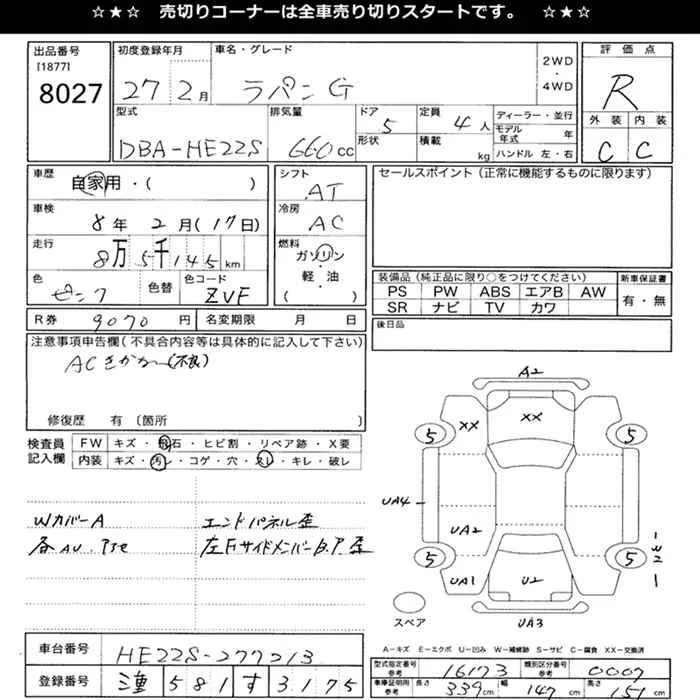 ☆★☆ 売切りコーナーは全車売り切りスタートです。 ☆★☆
出品番号 初度登録年月 車名・グレード 評価点
[1877] 2WD
8027 27 2月 ラパン G ・ R
4WD
型式 排気量 ドア 定員 ディーラー・並行 外装 内装
DBA-HE22S 660cc 5 4人 モデル年式 年 C C
形状 積載 kg ハンドル 左・右
車歴 自家用・( ) シフト AT セールスポイント(正常に機能するものに限ります)
車検 8年 2月(17日) 冷房 AC
走行 8万5千145km 燃料 ガソリン・軽・油 ( )
装備品(純正品に限り○をつけてください) 新車保証書
色 ピンク 色替 色コード ZVF
PS PW ABS エアB AW 有・無
SR ナビ TV カワ
R券 9070円 名変期限 月 日 後日品
注意事項申告欄(不具合内容等は具体的に記入して下さい)
ACきかない(不良)
修復歴 有〔箇所 〕
検査員記入欄 FW キズ・飛石・ヒビ割・リペア跡・X要
内装 キズ・汚レ・コゲ・穴・スレ・キレ・破レ
Wカバー A エンドパネル歪
各AU. 左Fサイドメンバー B.P.歪
A2
XX XX
5 5
UA4
UA2
5 5
W2
UA1 U2
スペア UA3
A=キズ E=エクボ U=凹み W=補修跡 S=サビ C=腐食 XX=交換済
車台番号 HE22S-277213
型式指定番号 参考 16173 類別区分番号 参考 0007
登録番号 581 す 3175
車庫証明用 参考 長さ 339cm 幅 147cm 高さ 151cm